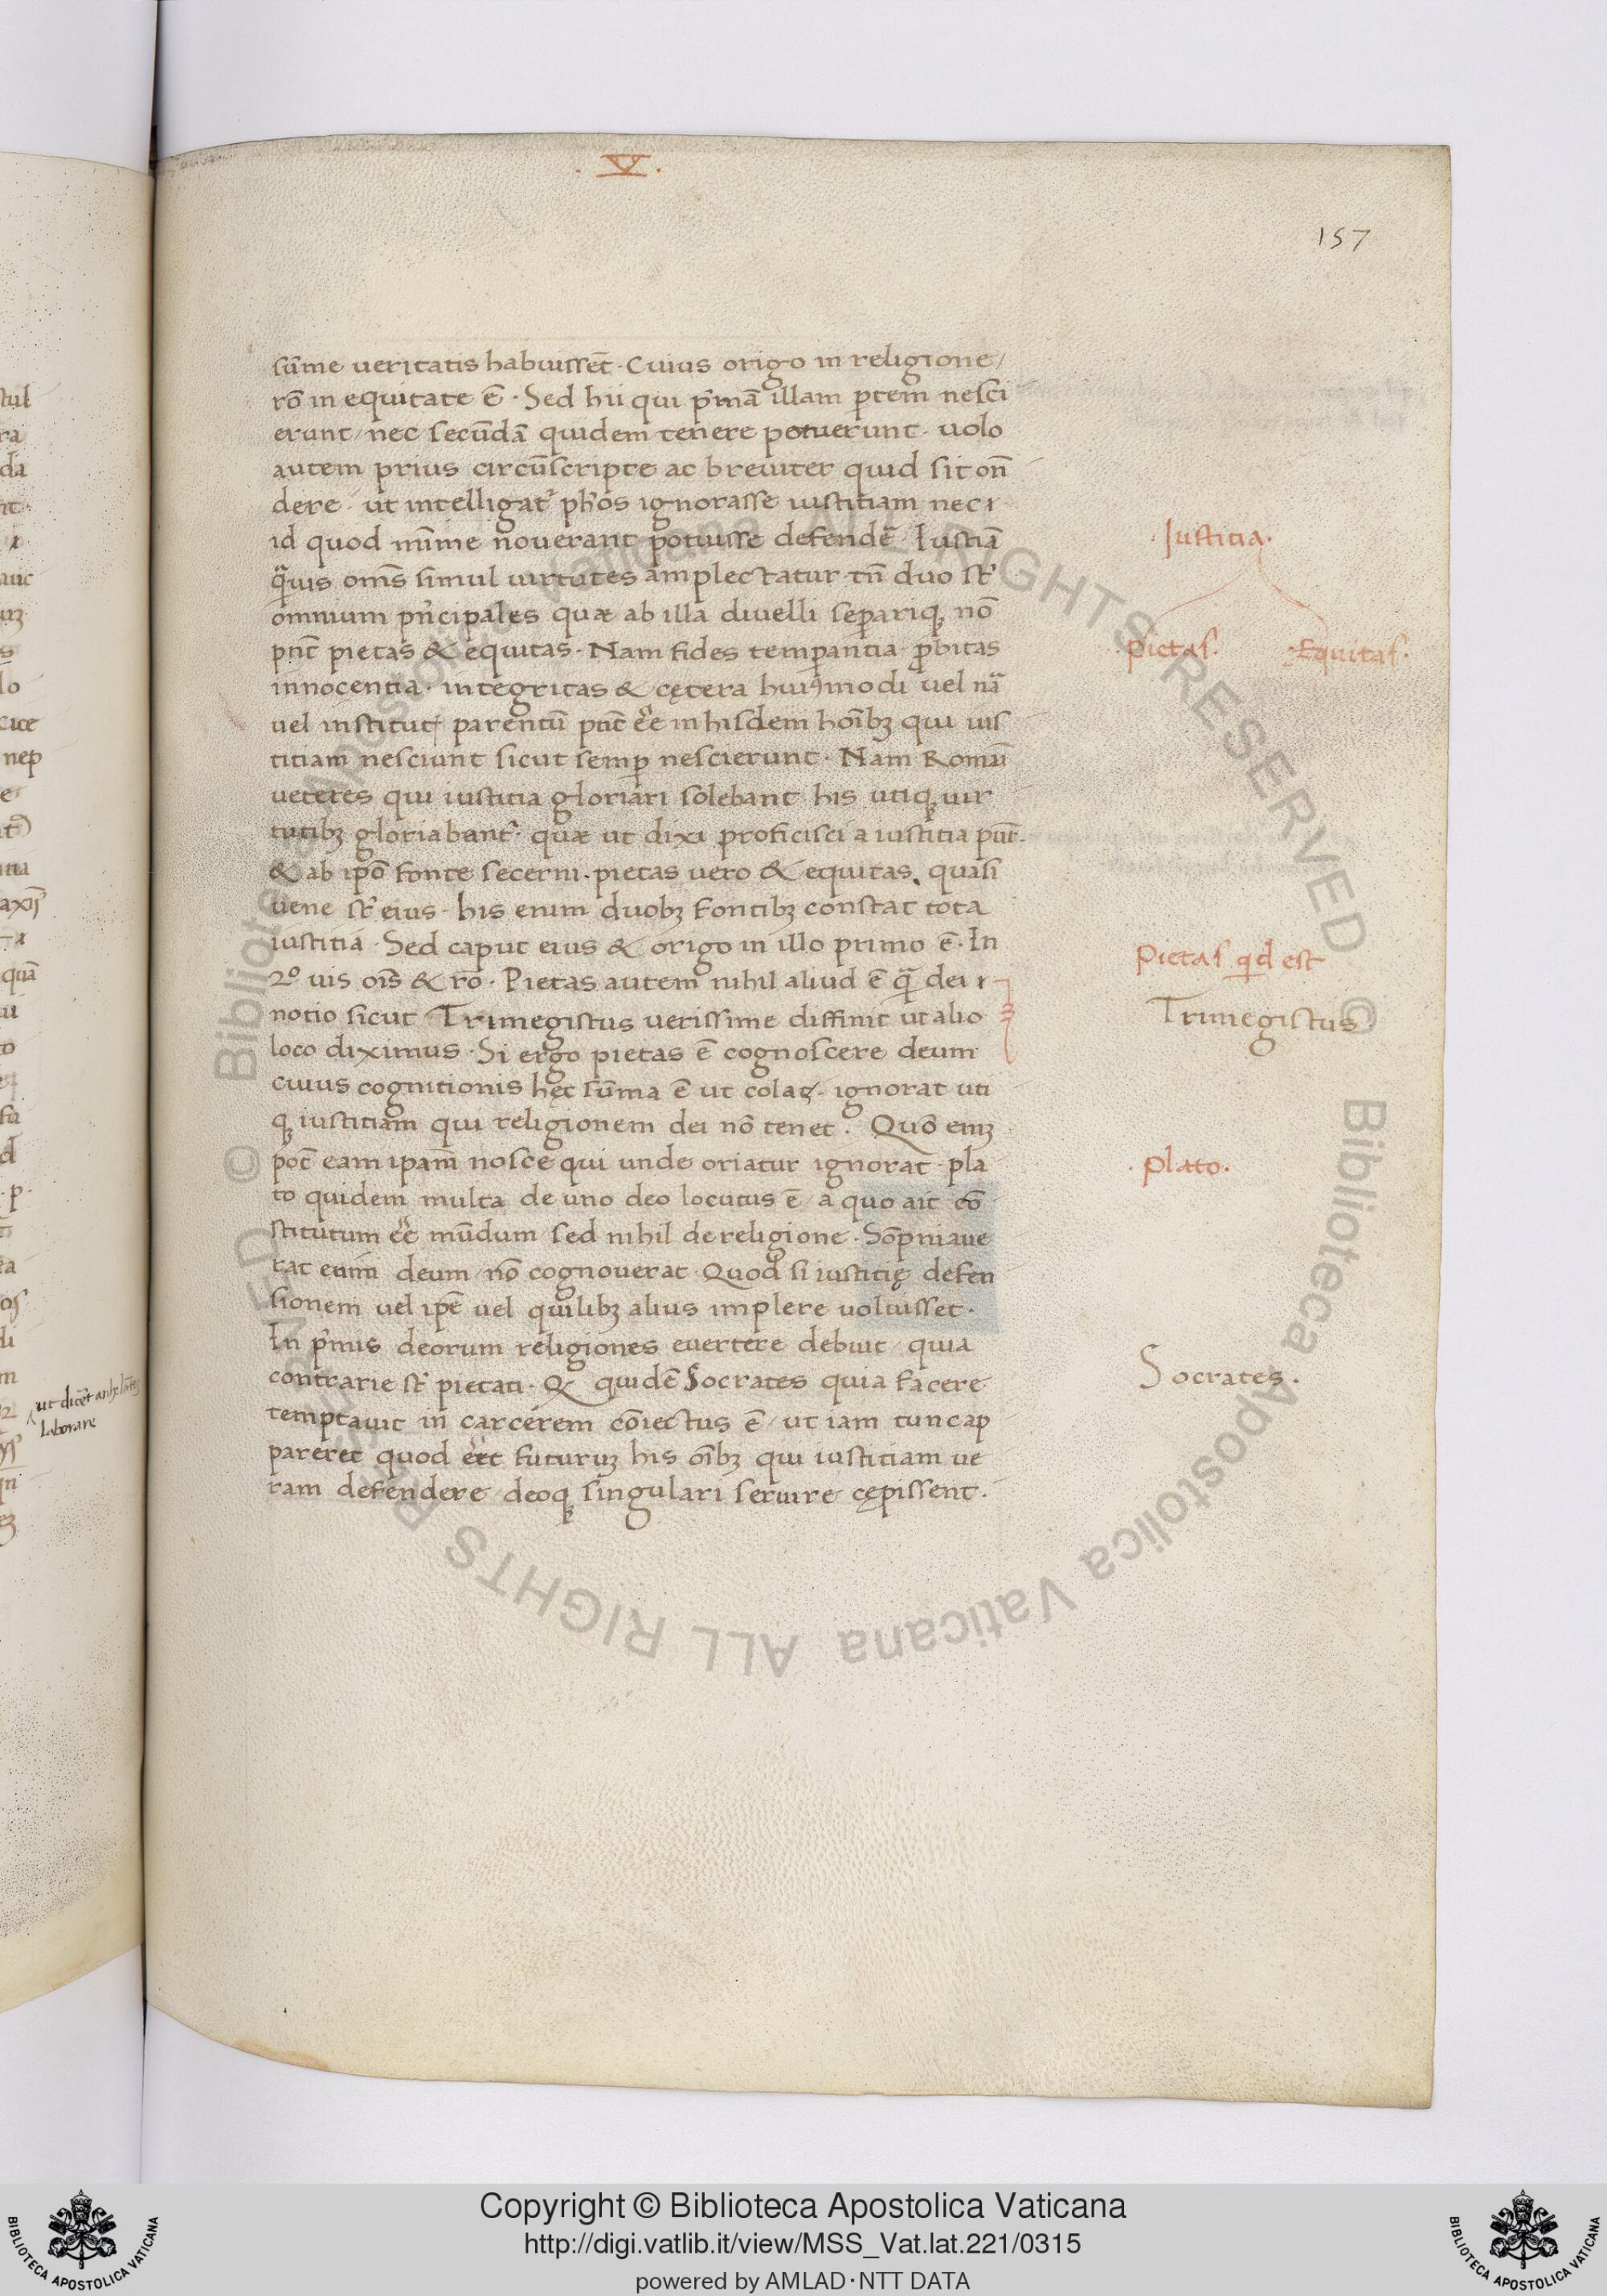 . V .
157
sūme veritatis habuissēt · Cuius origo in religione /
rō in equitate ē · Sed hii qui p̄mā illam ptem nesci
erunt / nec secūdā quidem tenere potuerunt · uolo
autem prius circūscripte ac breuiter quid sit on̄
dere · ut intelligat᷑ ph̄os ignorasse iustitiam nec ı
id quod mı̄me nouerant potuisse defendē · Iustiā
q̄uis om̄s simul uirtutes amplectatur tn̄ duo st᷑
omnium pn̄cipales quæ ab illa diuelli separiq; nō
pn̄t pietas & equitas · Nam fides temperantia probitas
innocentia · integritas & cętera huiꝰmodi uel nā
uel institut parentū pn̄t eē in hisdem hoı̄bꝫ qui ius
titiam nesciunt sicut semper nescierunt · Nam Romāi
ueteres qui iustitia gloriari solebant his utiq; uir
tutibꝫ gloriabant᷑ · quæ ut dixi proficisci a iustitia pn̄t ·
& ab ipō fonte secerni · pietas uero & equitas · quasi
uene st᷑ eius · his enim duobꝫ fontibꝫ constat tota
iustitia · Sed caput eius & origo in illo primo ē · In
2º uis oı̄s & rō · Pietas autem nihil aliud ē q̄ dei ı
notio sicut Trimegistus uerissime diffinit ut alio
loco diximus · Si ergo pietas ē cognoscere deum
cuius cognitionis hęc sūma ē ut colaꝫ · ignorat uti
q; iustitiam qui religionem dei nō tenet · Quō enıꝫ
pōt eam ipam̄ nosce qui unde oriatur ignorat · pla
to quidem multa de uno deo locutus ē / a quo ait cō
stitutum eē mūdum / sed nihil de religione · Sōpniaue
rat enim deum / nō cognouerat · Quod si iustitię defen
sionem uel ipē uel quilibꝫ alius implere uoluisset ·
In p̄mis deorum religiones euertere debuit / quia
contrarie st᷑ pietati · Q quidē Socrates quia facere
temptauit in carcerem cōiectus ē / ut iam tunc ap
pareret quod eēt futurꝫ his oı̄bꝫ qui iustitiam ue
ram defendere / deoq; singulari seruire cępissent ·
· Iustitia ·
· Pietas · · Equitas ·
Pietas qd est
Trimegistus
· Plato ·
Socrates ·
laborare
Copyright © Biblioteca Apostolica Vaticana
http://digi.vatlib.it/view/MSS_Vat.lat.221/0315
powered by AMLAD · NTT DATA
BIBLIOTECA APOSTOLICA VATICANA
BIBLIOTECA APOSTOLICA VATICANA
© Biblioteca Apostolica Vaticana ALL RIGHTS RESERVED
© Biblioteca Apostolica Vaticana ALL RIGHTS RESERVED